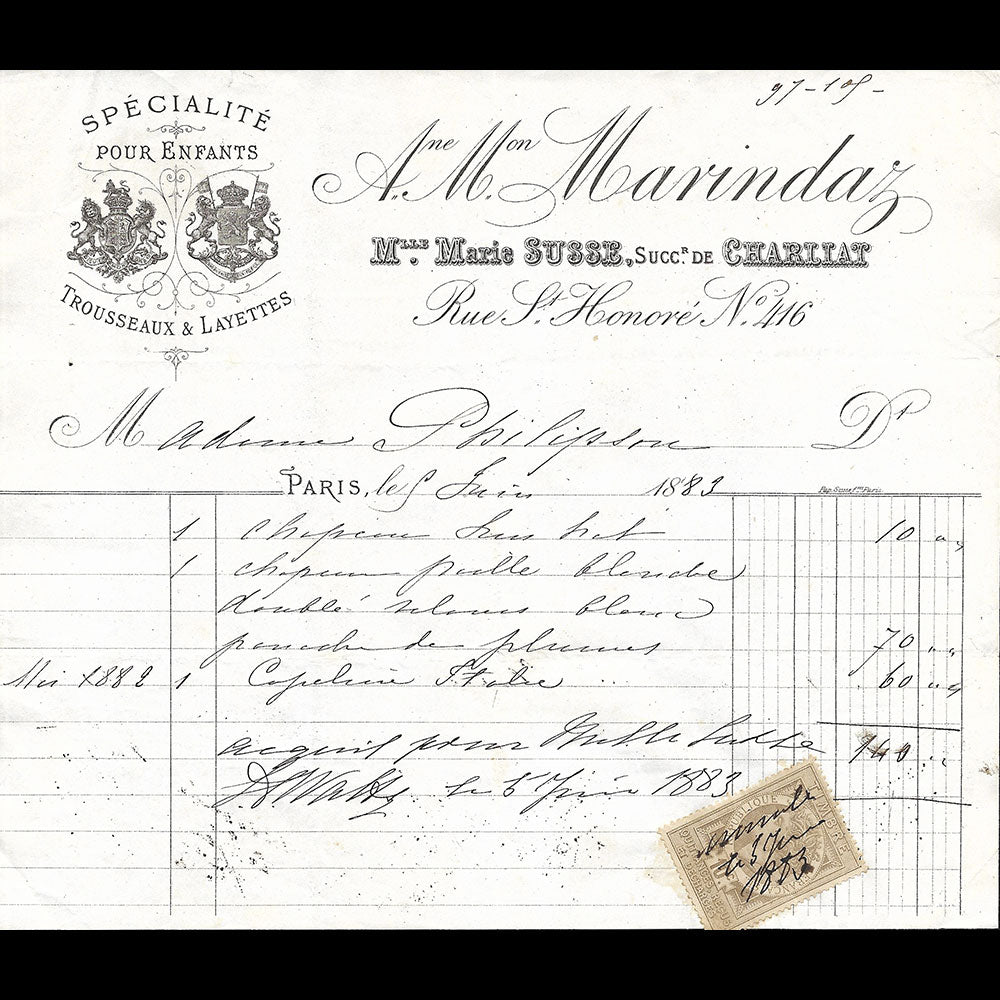 97-105-
SPÉCIALITÉ
POUR ENFANTS
TROUSSEAUX & LAYETTES
Ane Mon Marindaz
Mlle Marie SUSSE, Succr de CHARLIAT
Rue St Honoré No 416
Madame Philipson Dt
PARIS, le 5 Juin 1883
Pap. Susse Fres Paris
1 chapeau 10 " "
1 chapeau paille blanche
doublé velours blanc
panache de plumes 70 " "
Mai 1882 1 Capeline Italie .. 60 " "
acquit pour Melle Susse 140 " "
le 5 Juin 1883
RÉPUBLIQUE
le 5 Juin
1883